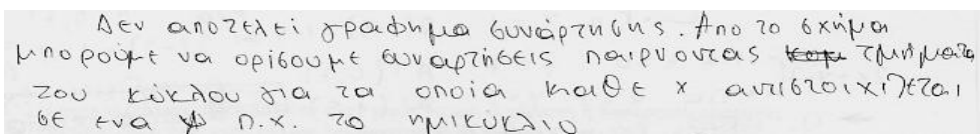 Δεν αποτελεί γραφημα συνάρτησης. Απο το σχήμα
μπορούμε να ορίσουμε συναρτήσεις παιρνοντας τμήματα
του κύκλου για τα οποία καθε x αντιστοιχίζεται
σε ενα ψ π.χ. το ημικύκλιο